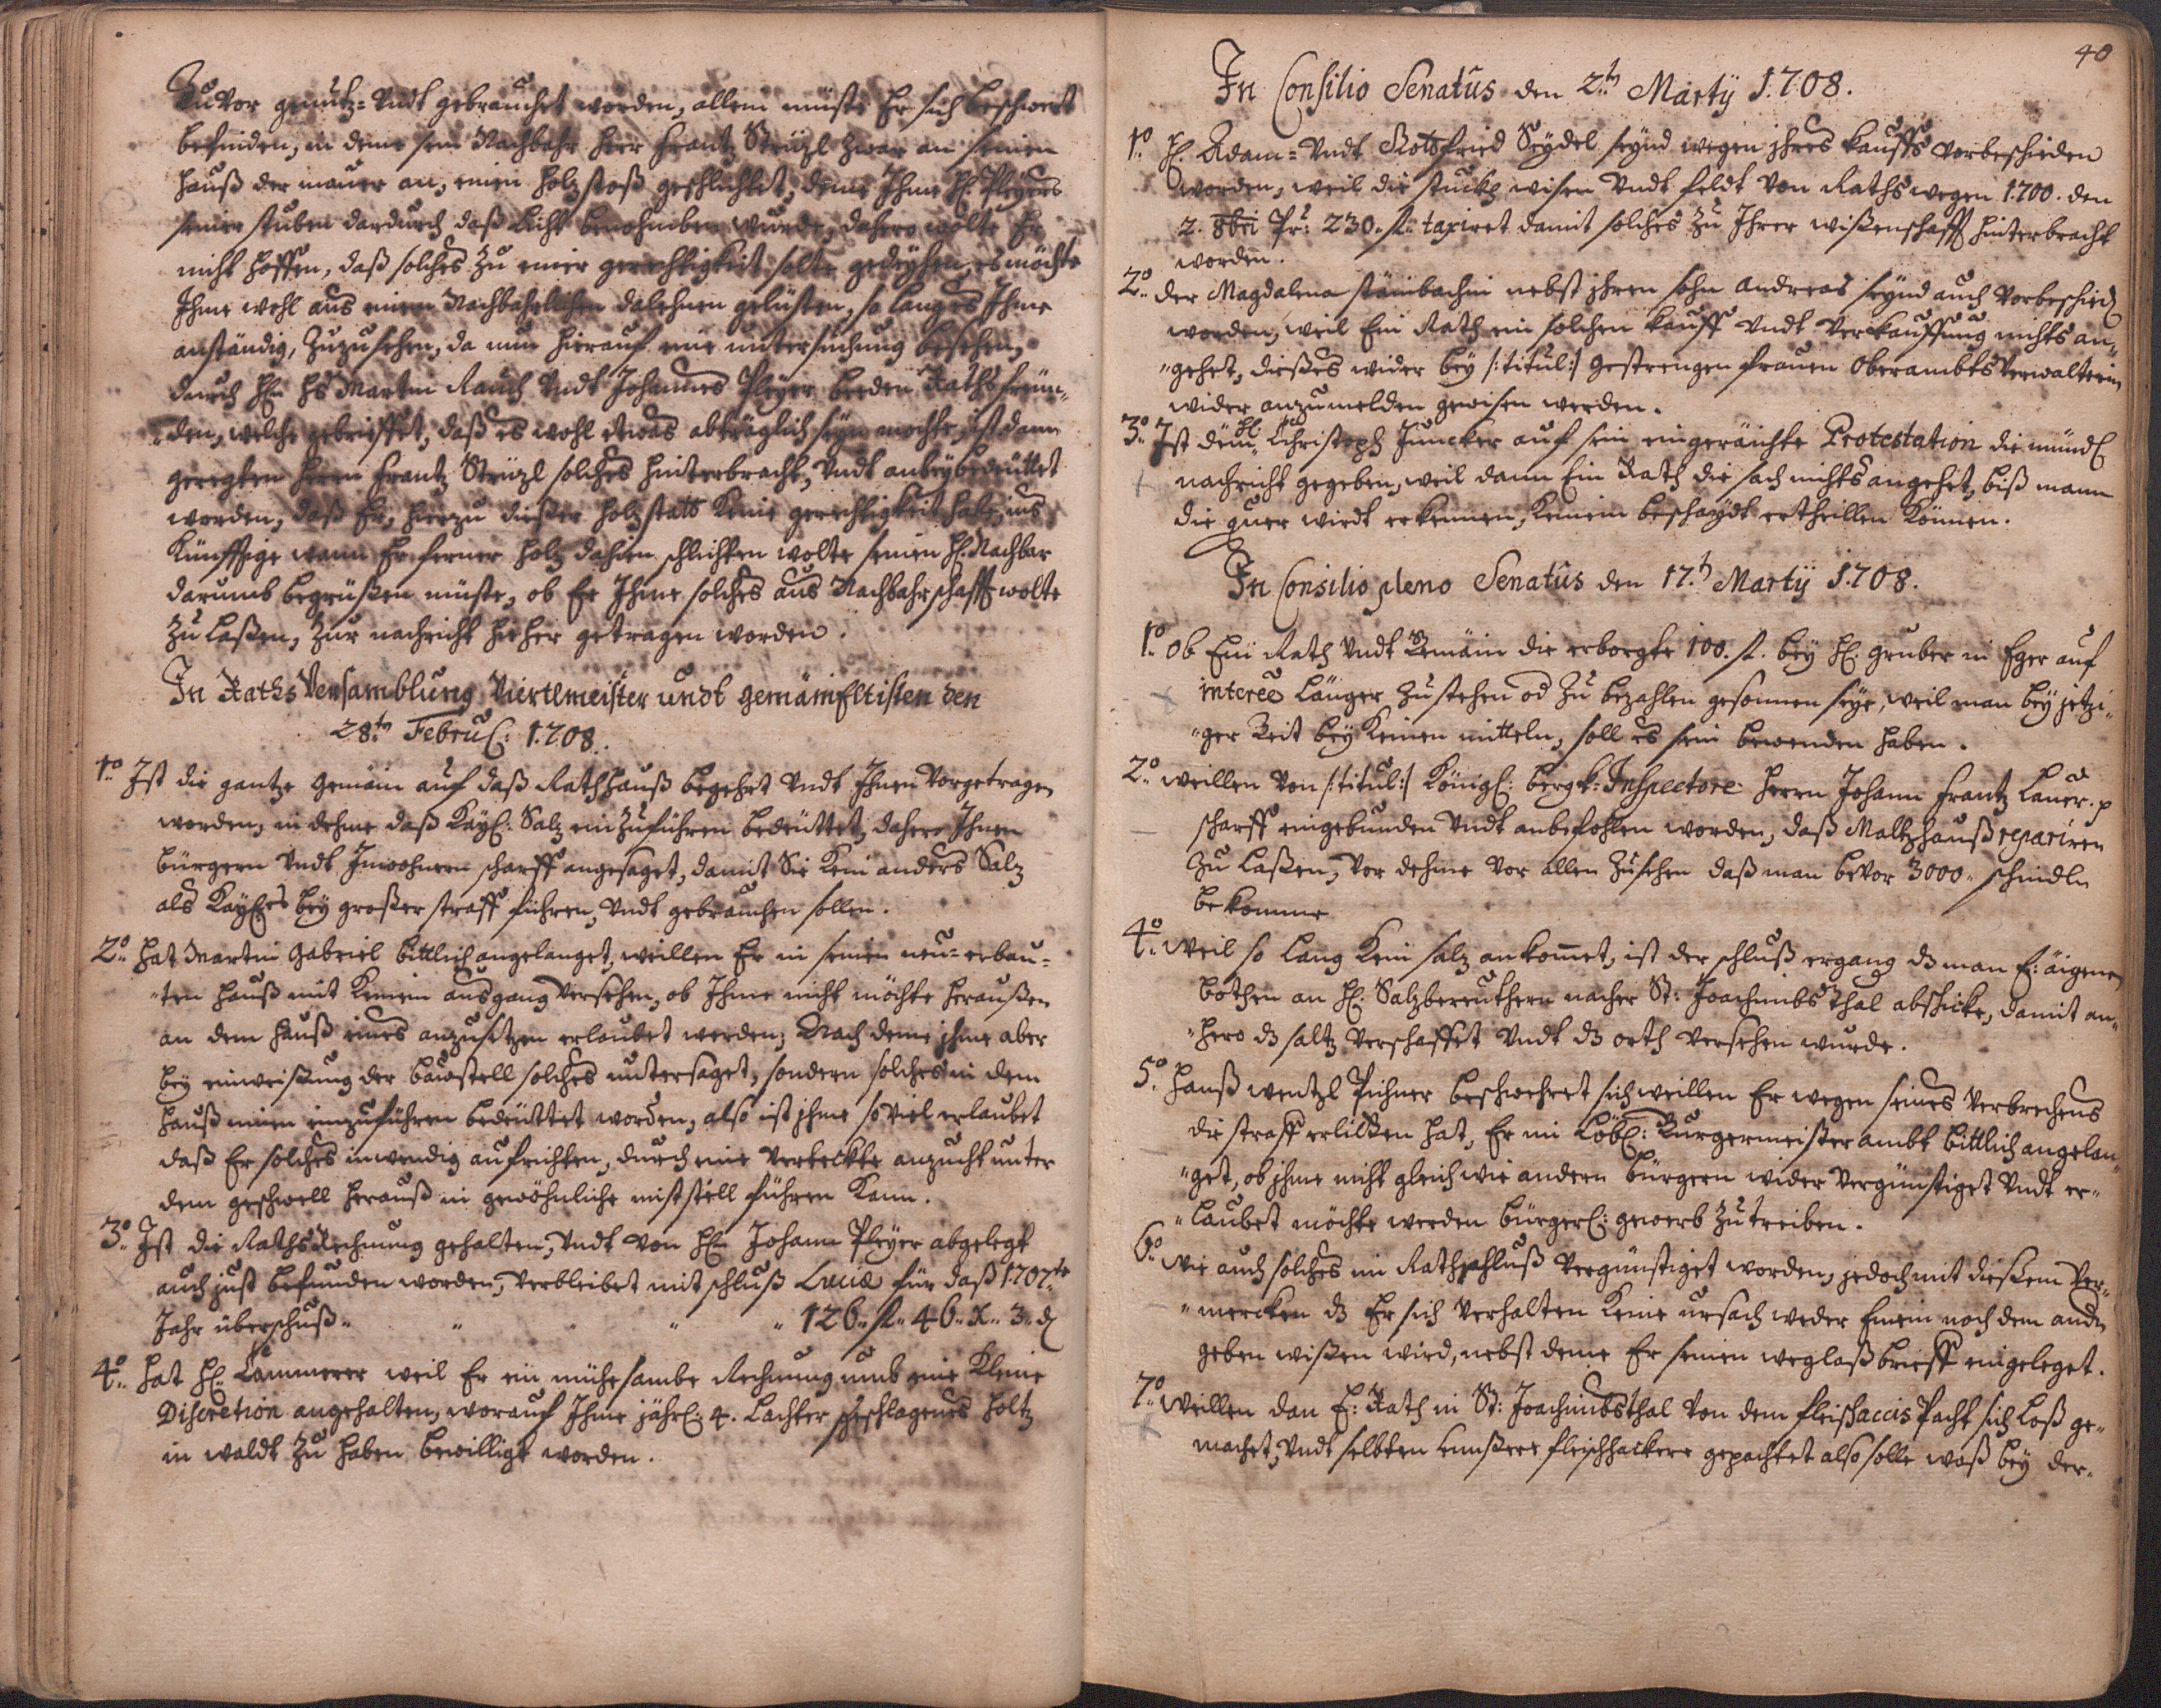 Zuvor genutz- Undt gebrauchet worden, allein müste Er sich beschwert
befinden, in deme sein Nachbahr Herr Frantz Steüzl zwar an seinen
Hauß der mauer an, einen holzstoß geschlichtet, deme Ihme H: Pleyers
seiner stuben dardurch daß Licht benohmben wurde, dahero wolte Er
nicht hoffen, daß solches Zu einer gerechtigkeit solte gedeyhen, es möchte
Ihme wohl aus einen Nachbahrlichen dalehnen gelüsten, so lang es Ihme
anständig, Zuzusehen, da nun hierauf eine untersuchung beschehen,
durch H: Hs Martin Rauch Undt Johannes Pleyer beeden Raths freün-
"den, welche gebrieffet, daß es wohl etwas abträglich seyn mochte, ist dann
geregten Herrn Frantz Steüzl solches hinterbracht, Undt anbey bedeuttet
worden, daß Er, hierzu dießer holzstatt Keine gerechtigkeit habe, ins
Künfftige wann Er ferner holz dahin schlichten wolte seinen H: Nachbar
darumb begrüßen müste, ob Er Ihme solches aus Nachbahrschafft wolte
Zu Laßen, Zur nachricht hieher getragen worden.
In Raths Versamblung Viertlmeister undt gemäin Eltisten den
28.tn Febru: 1708.
1o Ist die gantze Gemäin auf daß Rathhauß begehrt Undt Ihnen Vorgetragen
worden, in dehme daß Kayl: Salz einzuführen bedeuttet, dahero Ihnen
bürgern Undt Inwohnern scharff angesaget, damit Sie Kein anders Salz
als Kayl:es bey großer straff führen, Undt gebrauchen sollen.
2o hat Martin Gabriel bittlich angelanget, weillen Er in seinen neu- erbau-
"ten Hauß mit Keinem ausgang Versehen, ob Ihme nicht möchte heraußen
an dem Hauß eines anzusetzen erlaubet werden; Nach deme ihme aber
bey einweißung der bawstell solches untersaget, sondern solches in dem
Hauß innen einzuführen bedeüttet worden, also ist ihme so Viel erlaubet
daß Er solches inwendig aufrichten, durch eine Verteckte anzucht unter
dem geschwell herauß in gewöhnliche miststell führen Kann.
3o Ist die Raths Rechnung gehalten, Undt Von H: Johann Pleyer abgelegt
auch just befunden worden, Verbleibet mit schluß Luciæ für daß 1707te
Jahr überschuß " " " " " 126.. fl.. 46.. x.. 3.. d
4o hat H: Cammerer weil Er ein mühesambe Rechnung umb eine Kleine
Discretion angehalten, worauf Ihme jährl: 4. Lachter geschlagenes holtz
in waldt Zu haben bewilligt worden.
40
In Consilio Senatûs den 2.tn Martÿ 1.708.
1o H: Adam- Undt Gottfried Seydel seynd wegen ihres Kauffs Vorbeschieden
worden, weil die stuckh wisen Undt feldt Von Raths wegen 1.700. den
2. 8bri Pr: 230. fl. taxiret damit solches Zu Ihrer wißenschafft hinterbracht
worden.
2o der Magdalena stainbachin nebst ihren sohn Andreas seynd auch Vorbeschied
worden, weil Ein Rath ein solchen Kauff Undt Verkauffung nichts an-
"gehet, dießes wider bey /:titul:/ Gestrengen Frauen Oberambts Verwalterin
wider anzumelden gewisen werden.
3o Ist dem H: Christoph Juncker auf sein eingeräichte Protestation die mündl
nachricht gegeben, weil dann Ein Rath die sach nichts angehet, biß mann
die quer wirdt erkennen, Keinem beschaydt ertheillen Können.
In Consilio pleno Senatûs den 17.tn Martÿ 1.708.
1o Ob Ein Rath Undt Gemäin die erborgte 100. fl. bey H: Gruber in Eger auf
interee Länger Zu stehen od Zu bezahlen gesonnen seye, weil man bey jetzi-
"ger Zeit bey Keinen mitteln, soll es sein bewenden haben.
2o weillen Von /:titul:/ Königl: Bergk: Inspectore Herrn Johann Frantz Lauer. p
scharff eingebunden Undt anbefohlen worden, daß Maltzhauß repariren
Zu Laßen, Vor dehme Vor allen Zusehen daß man bevor 3000. schindln
bekomme
4o weil so lang Kein salz ankommet, ist der schluß ergang dz man E: äigenen
bothen an H: Salzbereuthern nacher St: Joachimbsthal abschicke, damit an-
"hero dz saltz Verschaffet Undt dz orth Versehen wurde.
5o Hanß Wentzl Pichner beschwehret sich weillen Er wegen seines Verbrechens
die straff erlitten hat, Er im Löbl: Burgermeister ambt bittlich angelan-
"get, ob ihme nicht gleich wie andern bürgern wider Vergünstiget Undt er-
"laubet möchte werden bürgerl: gewerb Zu treiben.
6o Wie auch solches im Rathschluß Vergünstiget worden, jedoch mit dießem Ver-
"mercken dz Er sich Verhalten Keine ursach weder Einem noch dem andn
geben wißen wird, nebst deme Er seinen weglaßbrieff eingeleget.
7o Weillen dan E: Rath in St: Joachimbsthal Von dem fleischaccis Pacht sich Loß ge-
machet, Undt selbten unßere fleischhacker gepachtet also solle waß bey der-